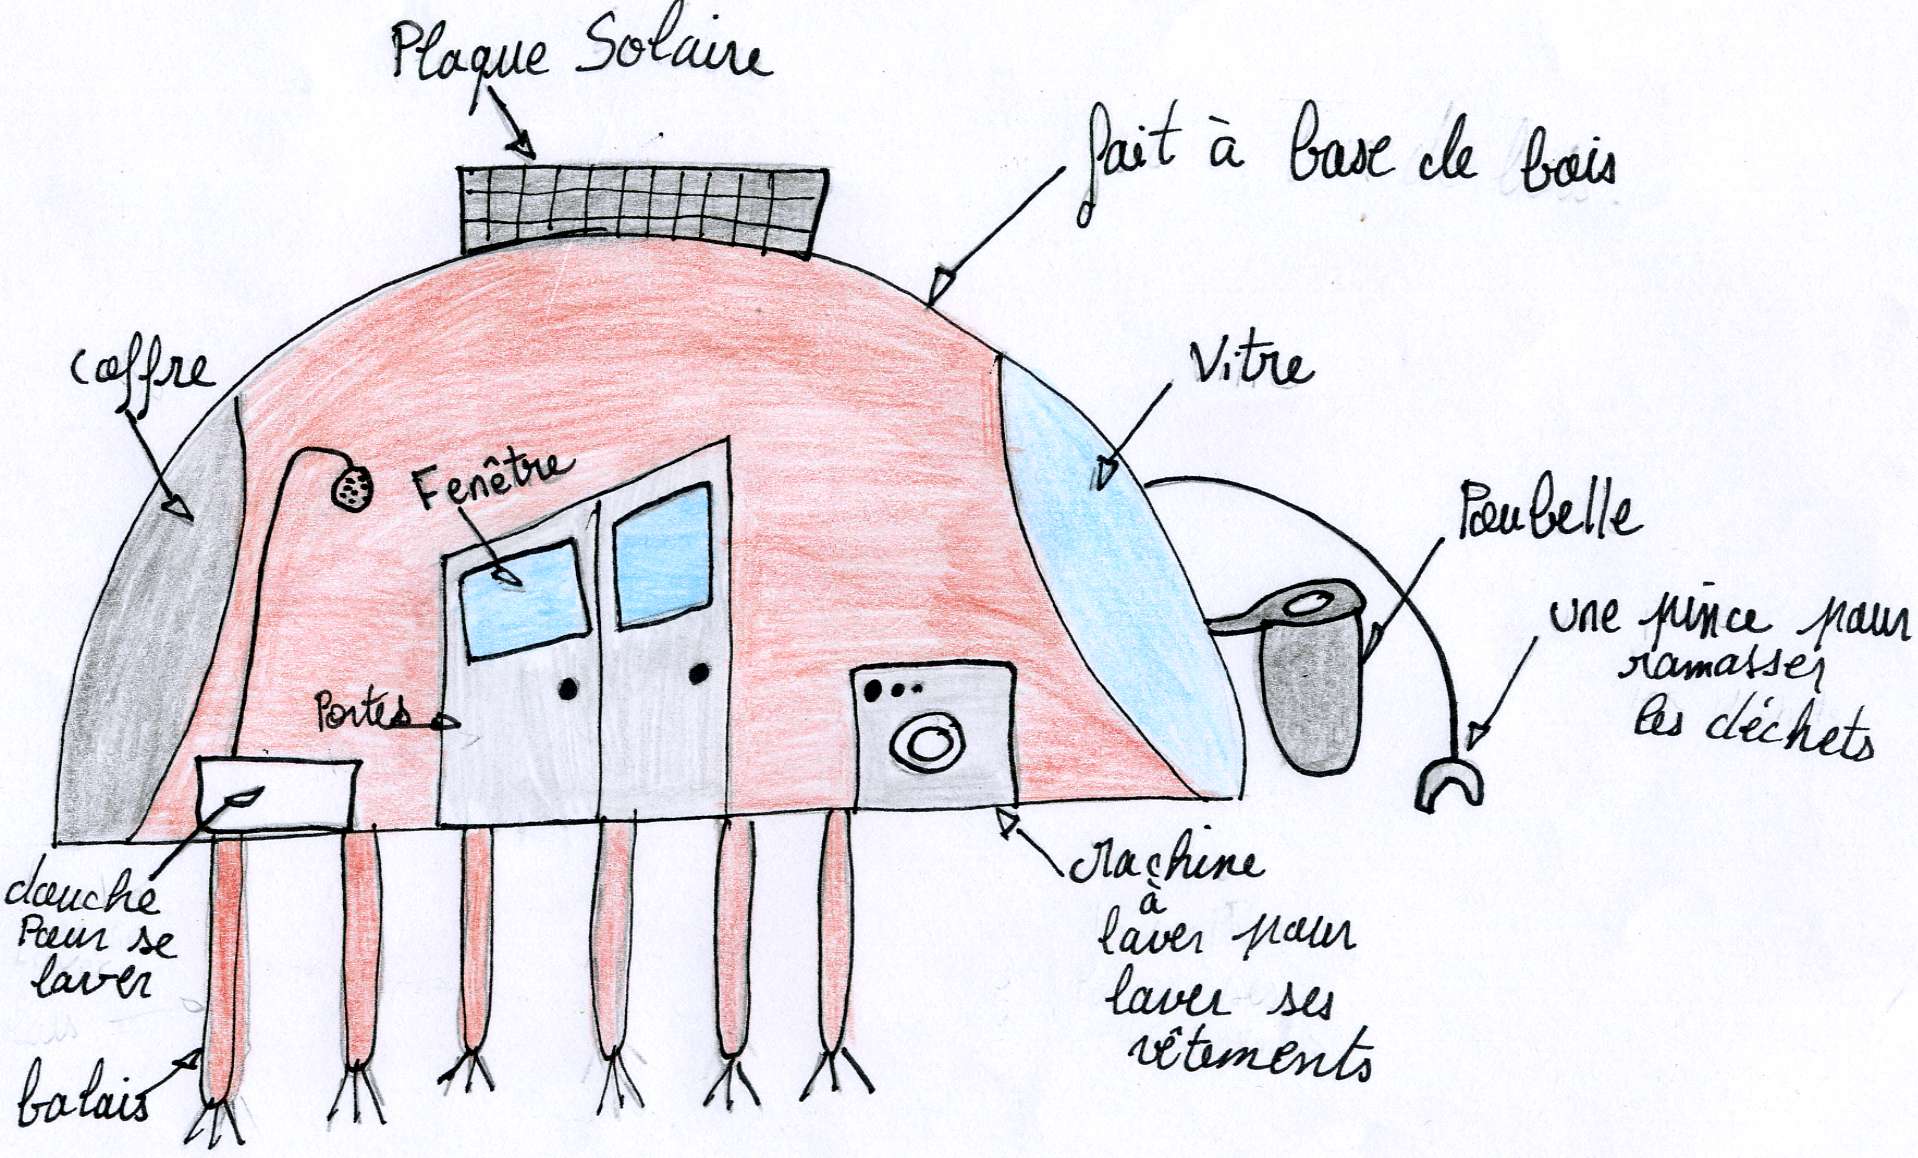 Plaque Solaire
fait à base de bois
coffre
Vitre
Fenêtre
Poubelle
une pince pour
ramasser
les déchets
Portes
douche
Pour se
laver
Machine
à
laver pour
laver ses
vêtements
balais